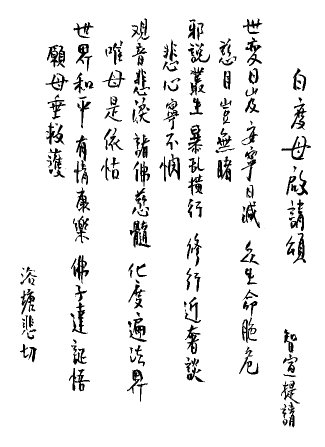 白度母啟請頌
智宣提請
世變日岌 安寧日減 众生命脆危
慈目豈無睹
邪説叢生 暴乱橫行 修行近奢談
悲心寧不憫
观音悲淚 諸佛慈髓 化度遍法界
唯母是依怙
世界和平 有情康樂 佛子達証悟
願母垂救護
洛塘悲切